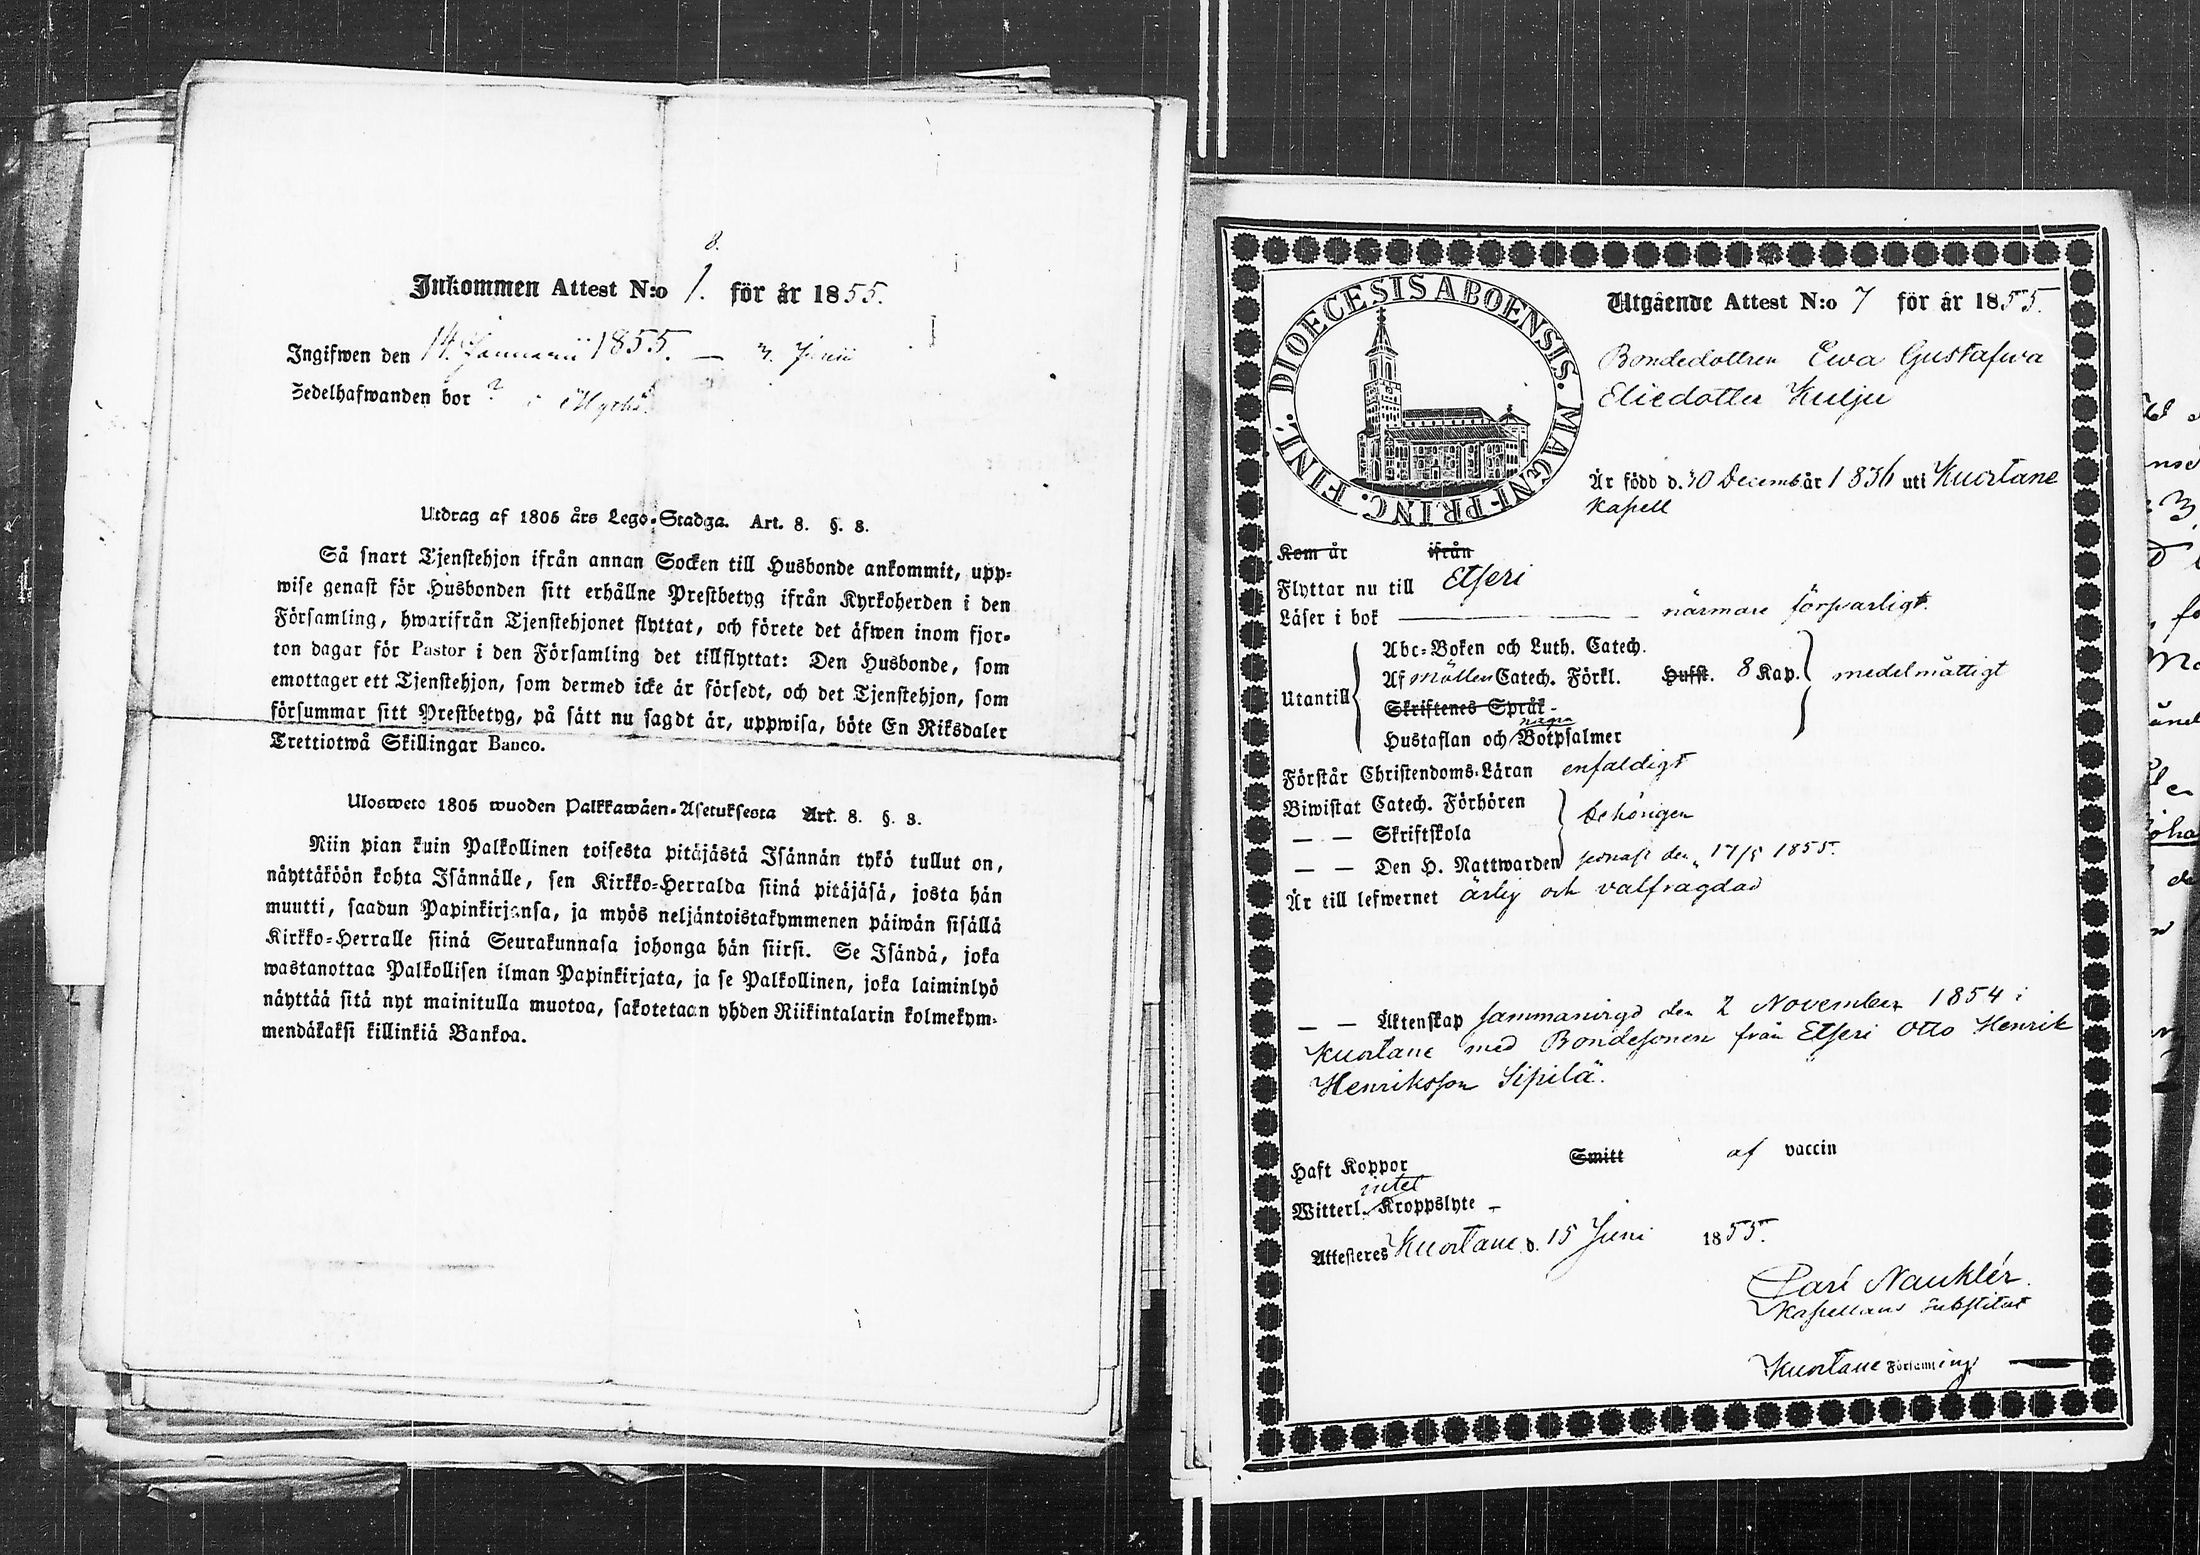 8.
Inkommen Attest N:o 1. för år 1855.
Ingifwen den 14. Januarii 1855. — 3. Junii
Zedelhafwanden bor ? i
Utdrag af 1805 års Lego-Stadga. Art. 8. §. 8.
Så snart Tjenstehjon ifrån annan Socken till Husbonde ankommit, upp-
wise genast för Husbonden sitt erhållne Prestbetyg ifrån Kyrkoherden i den
Församling, hwarifrån Tjenstehjonet flyttat, och förete det äfwen inom fjor-
ton dagar för Pastor i den Församling det tillflyttat: Den Husbonde, som
emottager ett Tjenstehjon, som dermed icke är försedt, och det Tjenstehjon, som
försummar sitt Prestbetyg, på sätt nu sagdt är, uppwisa, böte En Riksdaler
Trettiotwå Skillingar Banco.
Ulosweto 1805 wuoden Palkkawäen-Asetuksesta Art. 8. §. 8.
Niin pian kuin Palkollinen toisesta pitäjästä Isännän tykö tullut on,
näyttäköön kohta Isännälle, sen Kirkko-Herralda siinä pitäjäsä, josta hän
muutti, saadun Papinkirjansa, ja myös neljäntoistakymmenen päiwän sisällä
Kirkko-Herralle siinä Seurakunnasa johonga hän siirsi. Se Isändä, joka
wastanottaa Palkollisen ilman Papinkirjata, ja se Palkollinen, joka laiminlyö
näyttää sitä nyt mainitulla muotoa, sakotetaan yhden Riikintalarin kolmekym-
mendäkaksi killinkiä Bankoa.
DIOECESIS ABOENSIS. MAGNI-PRINC. FINL.
Utgående Attest N:o 7 för år 1855.
Bondedottren Ewa Gustafwa
Eliedotter Kulju
Är född d. 30 Decemb år 1836 uti Kuortane
Kapell
Kom år ifrån
Flyttar nu till Etseri
Läser i bok — närmare försvarligt.
Abc-Boken och Luth. Catech.
Af Möllen Catech. Förkl. Hufst. 8 Kap. medelmåttigt
Utantill
Skriftenes Språk -
några
Hustaflan och Botpsalmer
Förstår Christendoms-Läran enfaldigt
Biwistat Catech. Förhören
— — Skriftskola behörigen
— — Den H. Nattwarden senast den 17/5 1855.
Är till lefwernet ärlig och välfrägdad
— — Äktenskap sammanvigd den 2 November 1854 i
Kuortane med Bondesonen från Etseri Otto Henrik
Henriksson Sipilä.
Haft Koppor Smitt af vaccin
intet
Witterl. Kroppslyte -
Attesteres Kuortane d. 15 Juni 1855.
Carl Nauklér.
Kapellans Substitut
Kuortane Församling